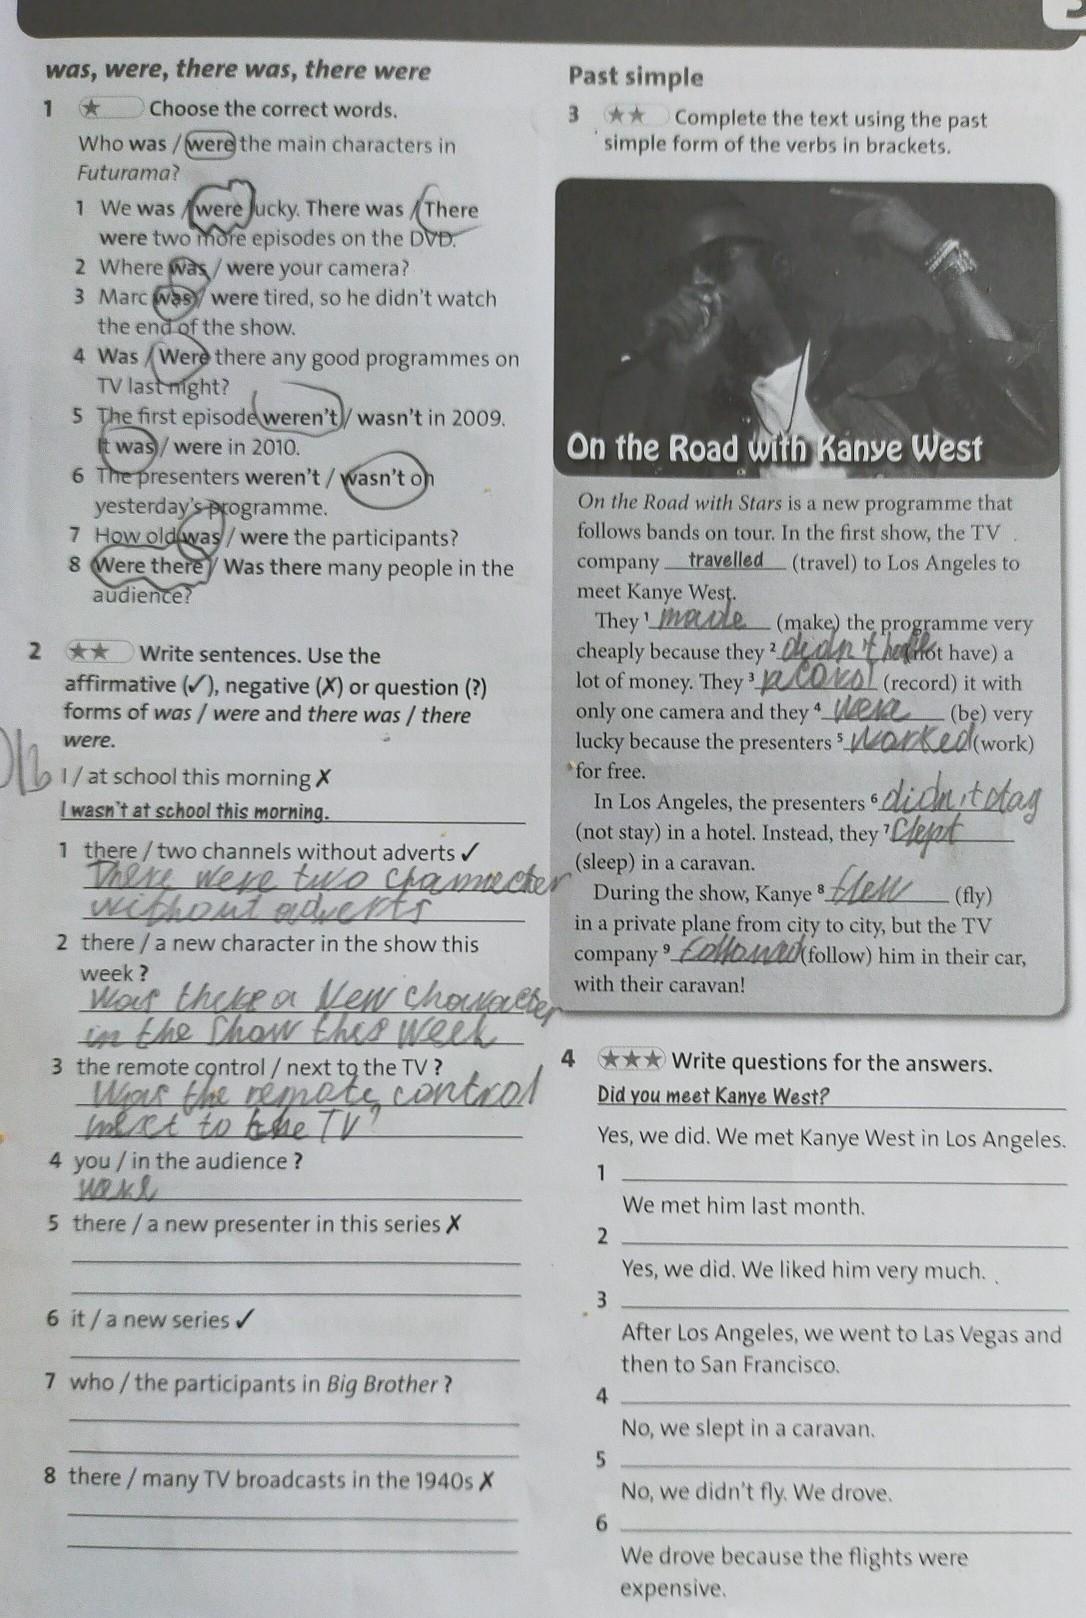 was, were, there was, there were
1 ★ Choose the correct words.
Who was / were the main characters in
Futurama?
1 We was / were lucky. There was / There
were two more episodes on the DVD.
2 Where was / were your camera?
3 Marc was / were tired, so he didn't watch
the end of the show.
4 Was / Were there any good programmes on
TV last night?
5 The first episode weren't / wasn't in 2009.
It was / were in 2010.
6 The presenters weren't / wasn't on
yesterday's programme.
7 How old was / were the participants?
8 Were there / Was there many people in the
audience?
2 ★★ Write sentences. Use the
affirmative (✓), negative (✗) or question (?)
forms of was / were and there was / there
were.
I / at school this morning ✗
I wasn't at school this morning.
1 there / two channels without adverts ✓
There were two
without adverts
2 there / a new character in the show this
week ?
Was there a New character
in the Show this week
3 the remote control / next to the TV ?
Was the remote control
next to the TV?
4 you / in the audience ?
were
5 there / a new presenter in this series ✗
6 it / a new series ✓
7 who / the participants in Big Brother ?
8 there / many TV broadcasts in the 1940s ✗
Past simple
3 ★★ Complete the text using the past
simple form of the verbs in brackets.
On the Road with Kanye West
On the Road with Stars is a new programme that
follows bands on tour. In the first show, the TV
company travelled (travel) to Los Angeles to
meet Kanye West.
They 1 made (make) the programme very
cheaply because they 2 didn't (not have) a
lot of money. They 3 (record) it with
only one camera and they 4 were (be) very
lucky because the presenters 5 worked (work)
for free.
In Los Angeles, the presenters 6 didn't stay
(not stay) in a hotel. Instead, they 7 slept
(sleep) in a caravan.
During the show, Kanye 8 flew (fly)
in a private plane from city to city, but the TV
company 9 followed (follow) him in their car,
with their caravan!
4 ★★★ Write questions for the answers.
Did you meet Kanye West?
Yes, we did. We met Kanye West in Los Angeles.
1
We met him last month.
2
Yes, we did. We liked him very much.
3
After Los Angeles, we went to Las Vegas and
then to San Francisco.
4
No, we slept in a caravan.
5
No, we didn't fly. We drove.
6
We drove because the flights were
expensive.